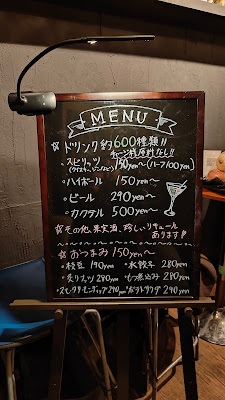 MENU
☆ドリンク約600種類!!
チャージ料原料なし!!
・スピリッツ 150yen〜(ハーフ100yen)
・ハイボール 150yen〜
・ビール 290yen〜
・カクテル 500yen〜
☆その他、果実酒、珍しいリキュール
あります!!
☆おつまみ150yen〜
・枝豆 190yen ・水餃子 280yen
・炙りスルメ 290yen ・もつ煮込み 280yen
・スモークサーモンチップ290yen ・ポテトサラダ 290yen